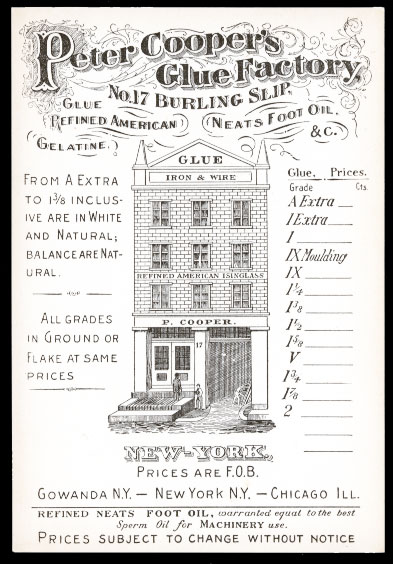 Peter Cooper's
Glue Factory,
No. 17 BURLING SLIP.
GLUE
(REFINED AMERICAN)
(NEATS FOOT OIL.
&C.
(GELATINE.)
FROM A EXTRA
TO 1 3/8 INCLUS-
IVE ARE IN WHITE
AND NATURAL;
BALANCE ARE NAT-
URAL.
ALL GRADES
IN GROUND OR
FLAKE AT SAME
PRICES
GLUE
IRON & WIRE
REFINED AMERICAN ISINGLASS
P. COOPER.
17
Glue, Prices.
Grade Cts.
A Extra
1 Extra
1
1X Moulding
1X
1 1/4
1 3/8
1 1/2
1 5/8
V
1 3/4
1 7/8
2
NEW-YORK.
PRICES ARE F.O.B.
GOWANDA N.Y. — NEW YORK N.Y. — CHICAGO ILL.
REFINED NEATS FOOT OIL, warranted equal to the best
Sperm Oil for MACHINERY use.
PRICES SUBJECT TO CHANGE WITHOUT NOTICE